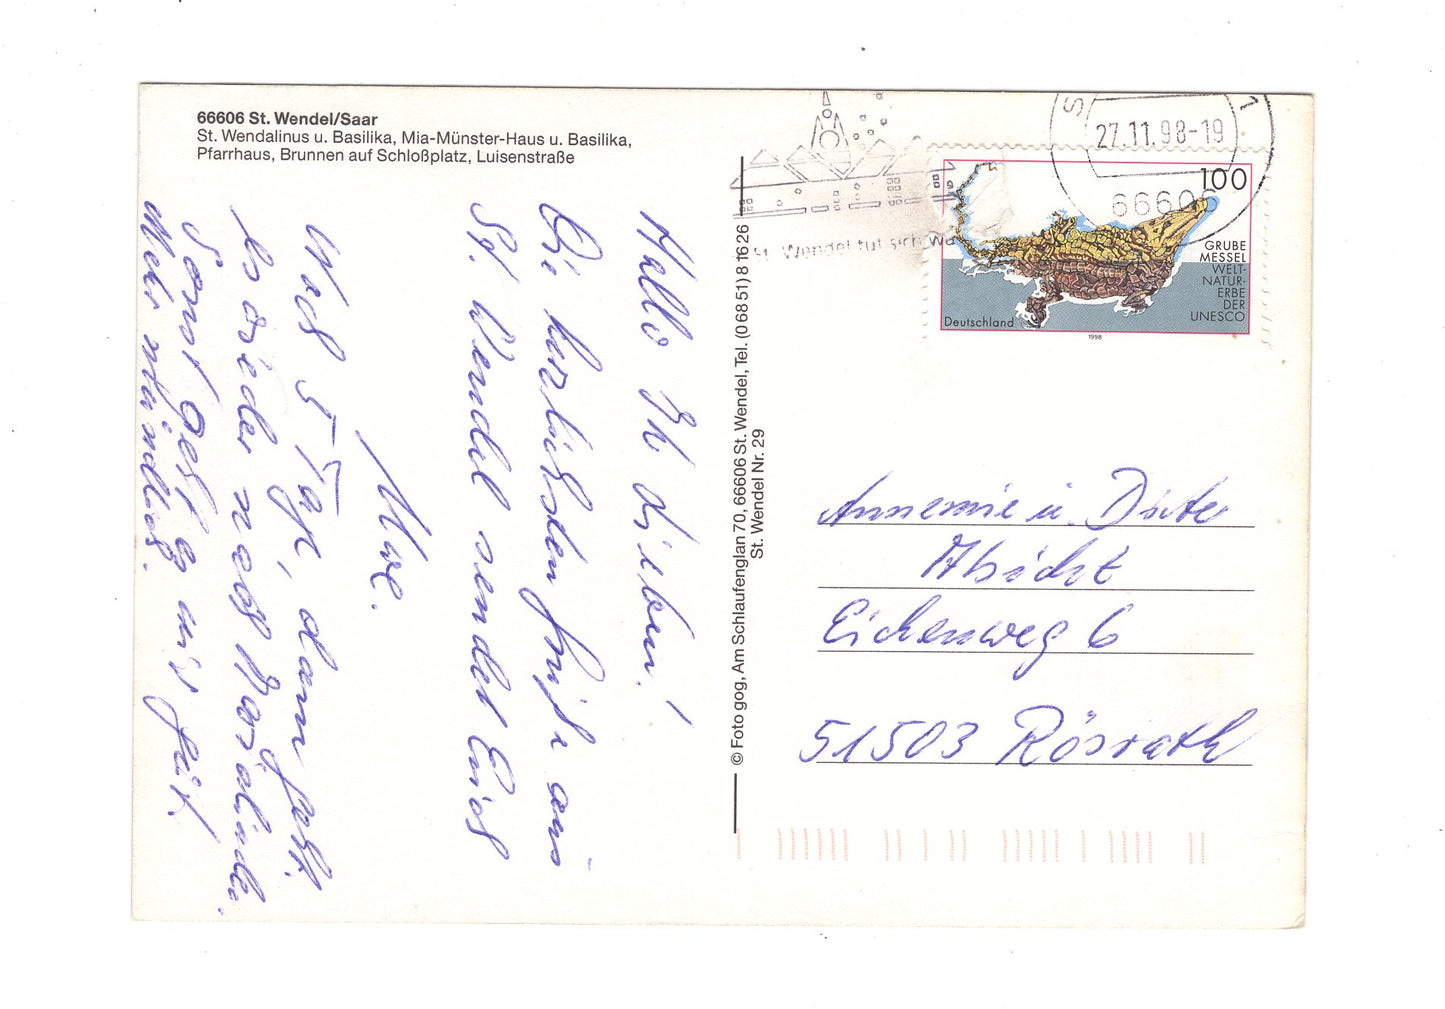 66606 St. Wendel/Saar
St. Wendalinus u. Basilika, Mia-Münster-Haus u. Basilika,
Pfarrhaus, Brunnen auf Schloßplatz, Luisenstraße
Hallo Ihr Lieben!
Die herzlichsten Grüße aus
St. Wendel sendet Euch
Uwe.
Noch 5 Tage, dann geht
es wieder nach
Sonst geht es mir gut.
Mehr mündlich.
© Foto gog, Am Schlaufenglan 70, 66606 St. Wendel, Tel. (0 68 51) 8 16 26
St. Wendel Nr. 29
St. Wendel tut sich wa
27.11.98-19
66606
100
GRUBE
MESSEL
WELT-
NATUR-
ERBE
DER
UNESCO
Deutschland
1998
Annemie u. Dieter
Absicht
Eichenweg 6
51503 Rösrath